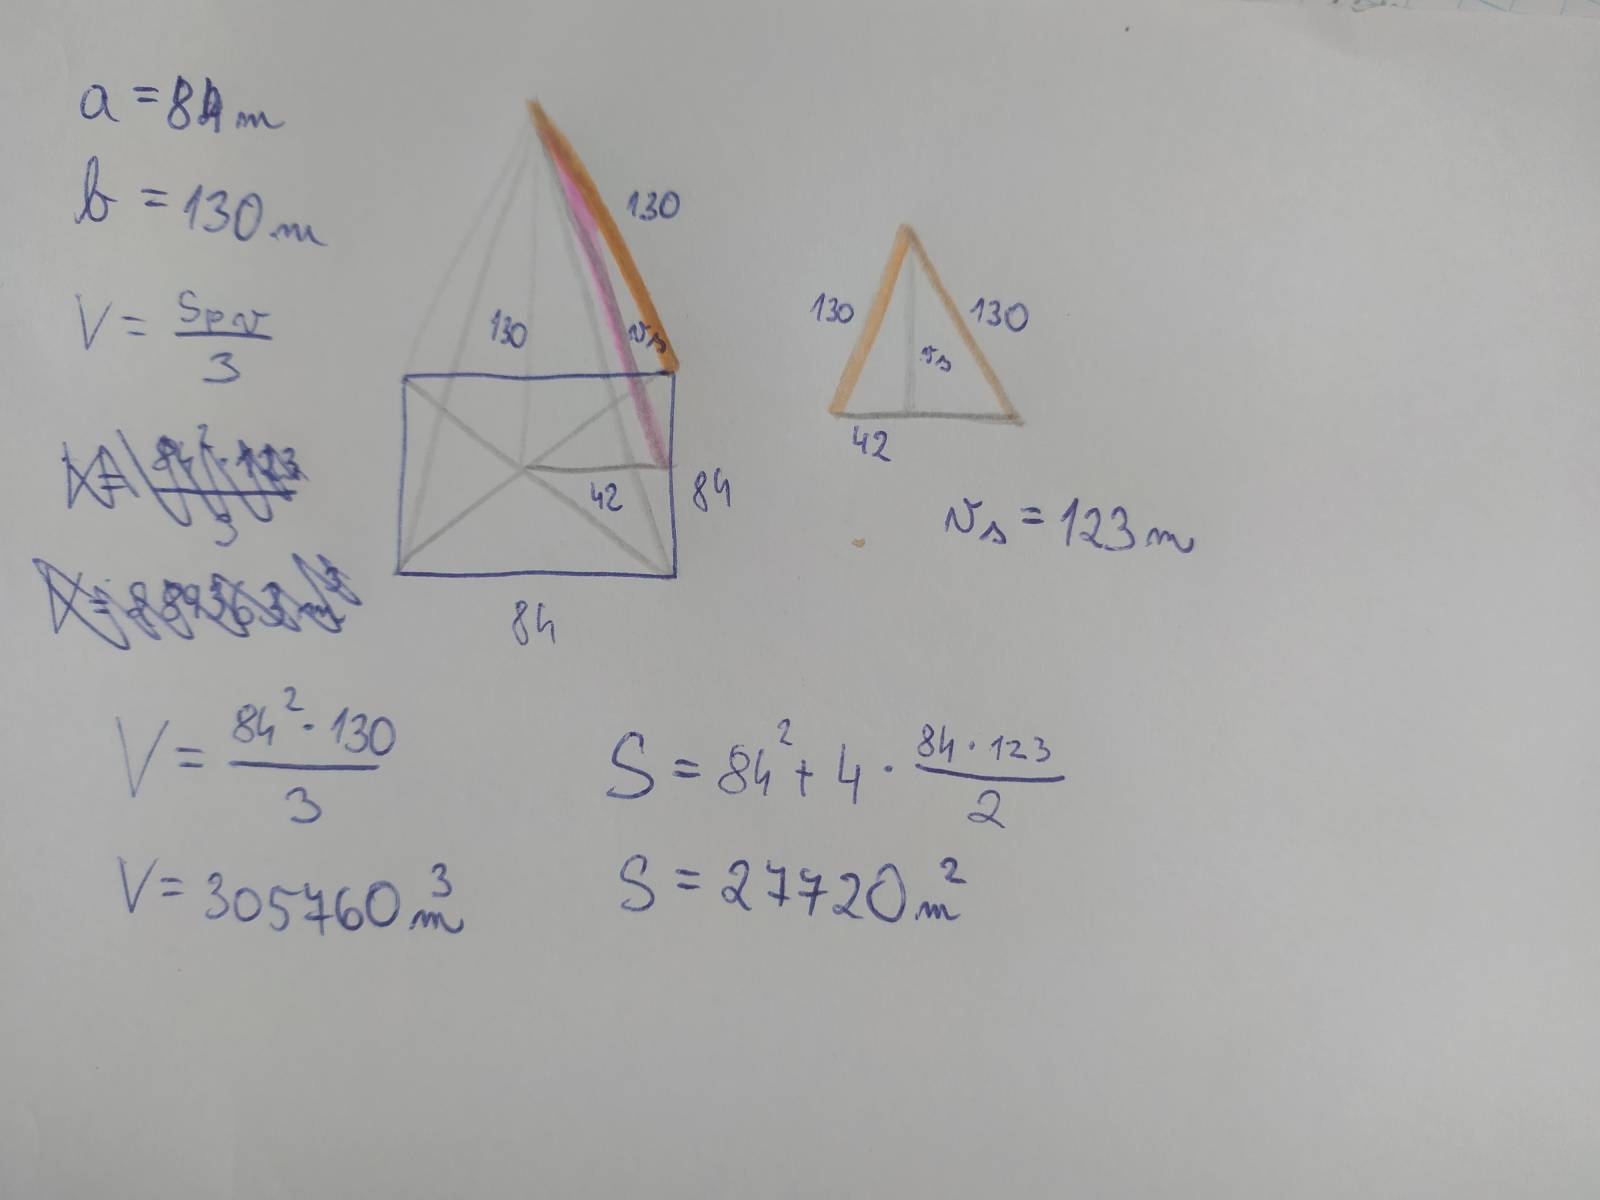 a = 84 m
b = 130 m
V = Sp v / 3
V = 84² · 123 / 3
130
130
v_s
42
84
84
130
130
v_s
42
v_s = 123 m
V = 84² · 130 / 3
V = 305760 m³
S = 84² + 4 · 84 · 123 / 2
S = 27720 m²